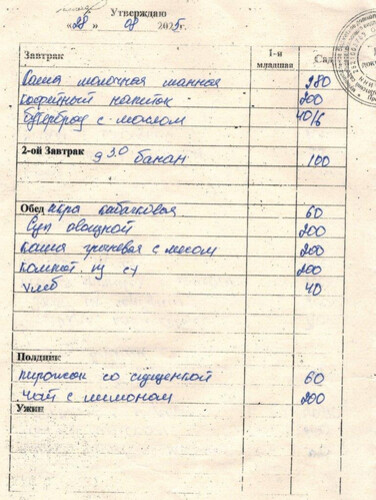 Утверждаю
«28» 08 2025г.
Завтрак 1-я младшая Сад
Каша молочная манная 280
Кофейный напиток 200
Бутерброд с маслом 40/6
2-ой Завтрак 9 30 банан 100
Обед Икра кабачковая 60
Суп овощной 200
каша гречневая с мясом 200
компот из с/ 200
хлеб 40
Полдник
пирожок со сгущенкой 60
чай с лимоном 200
Ужин